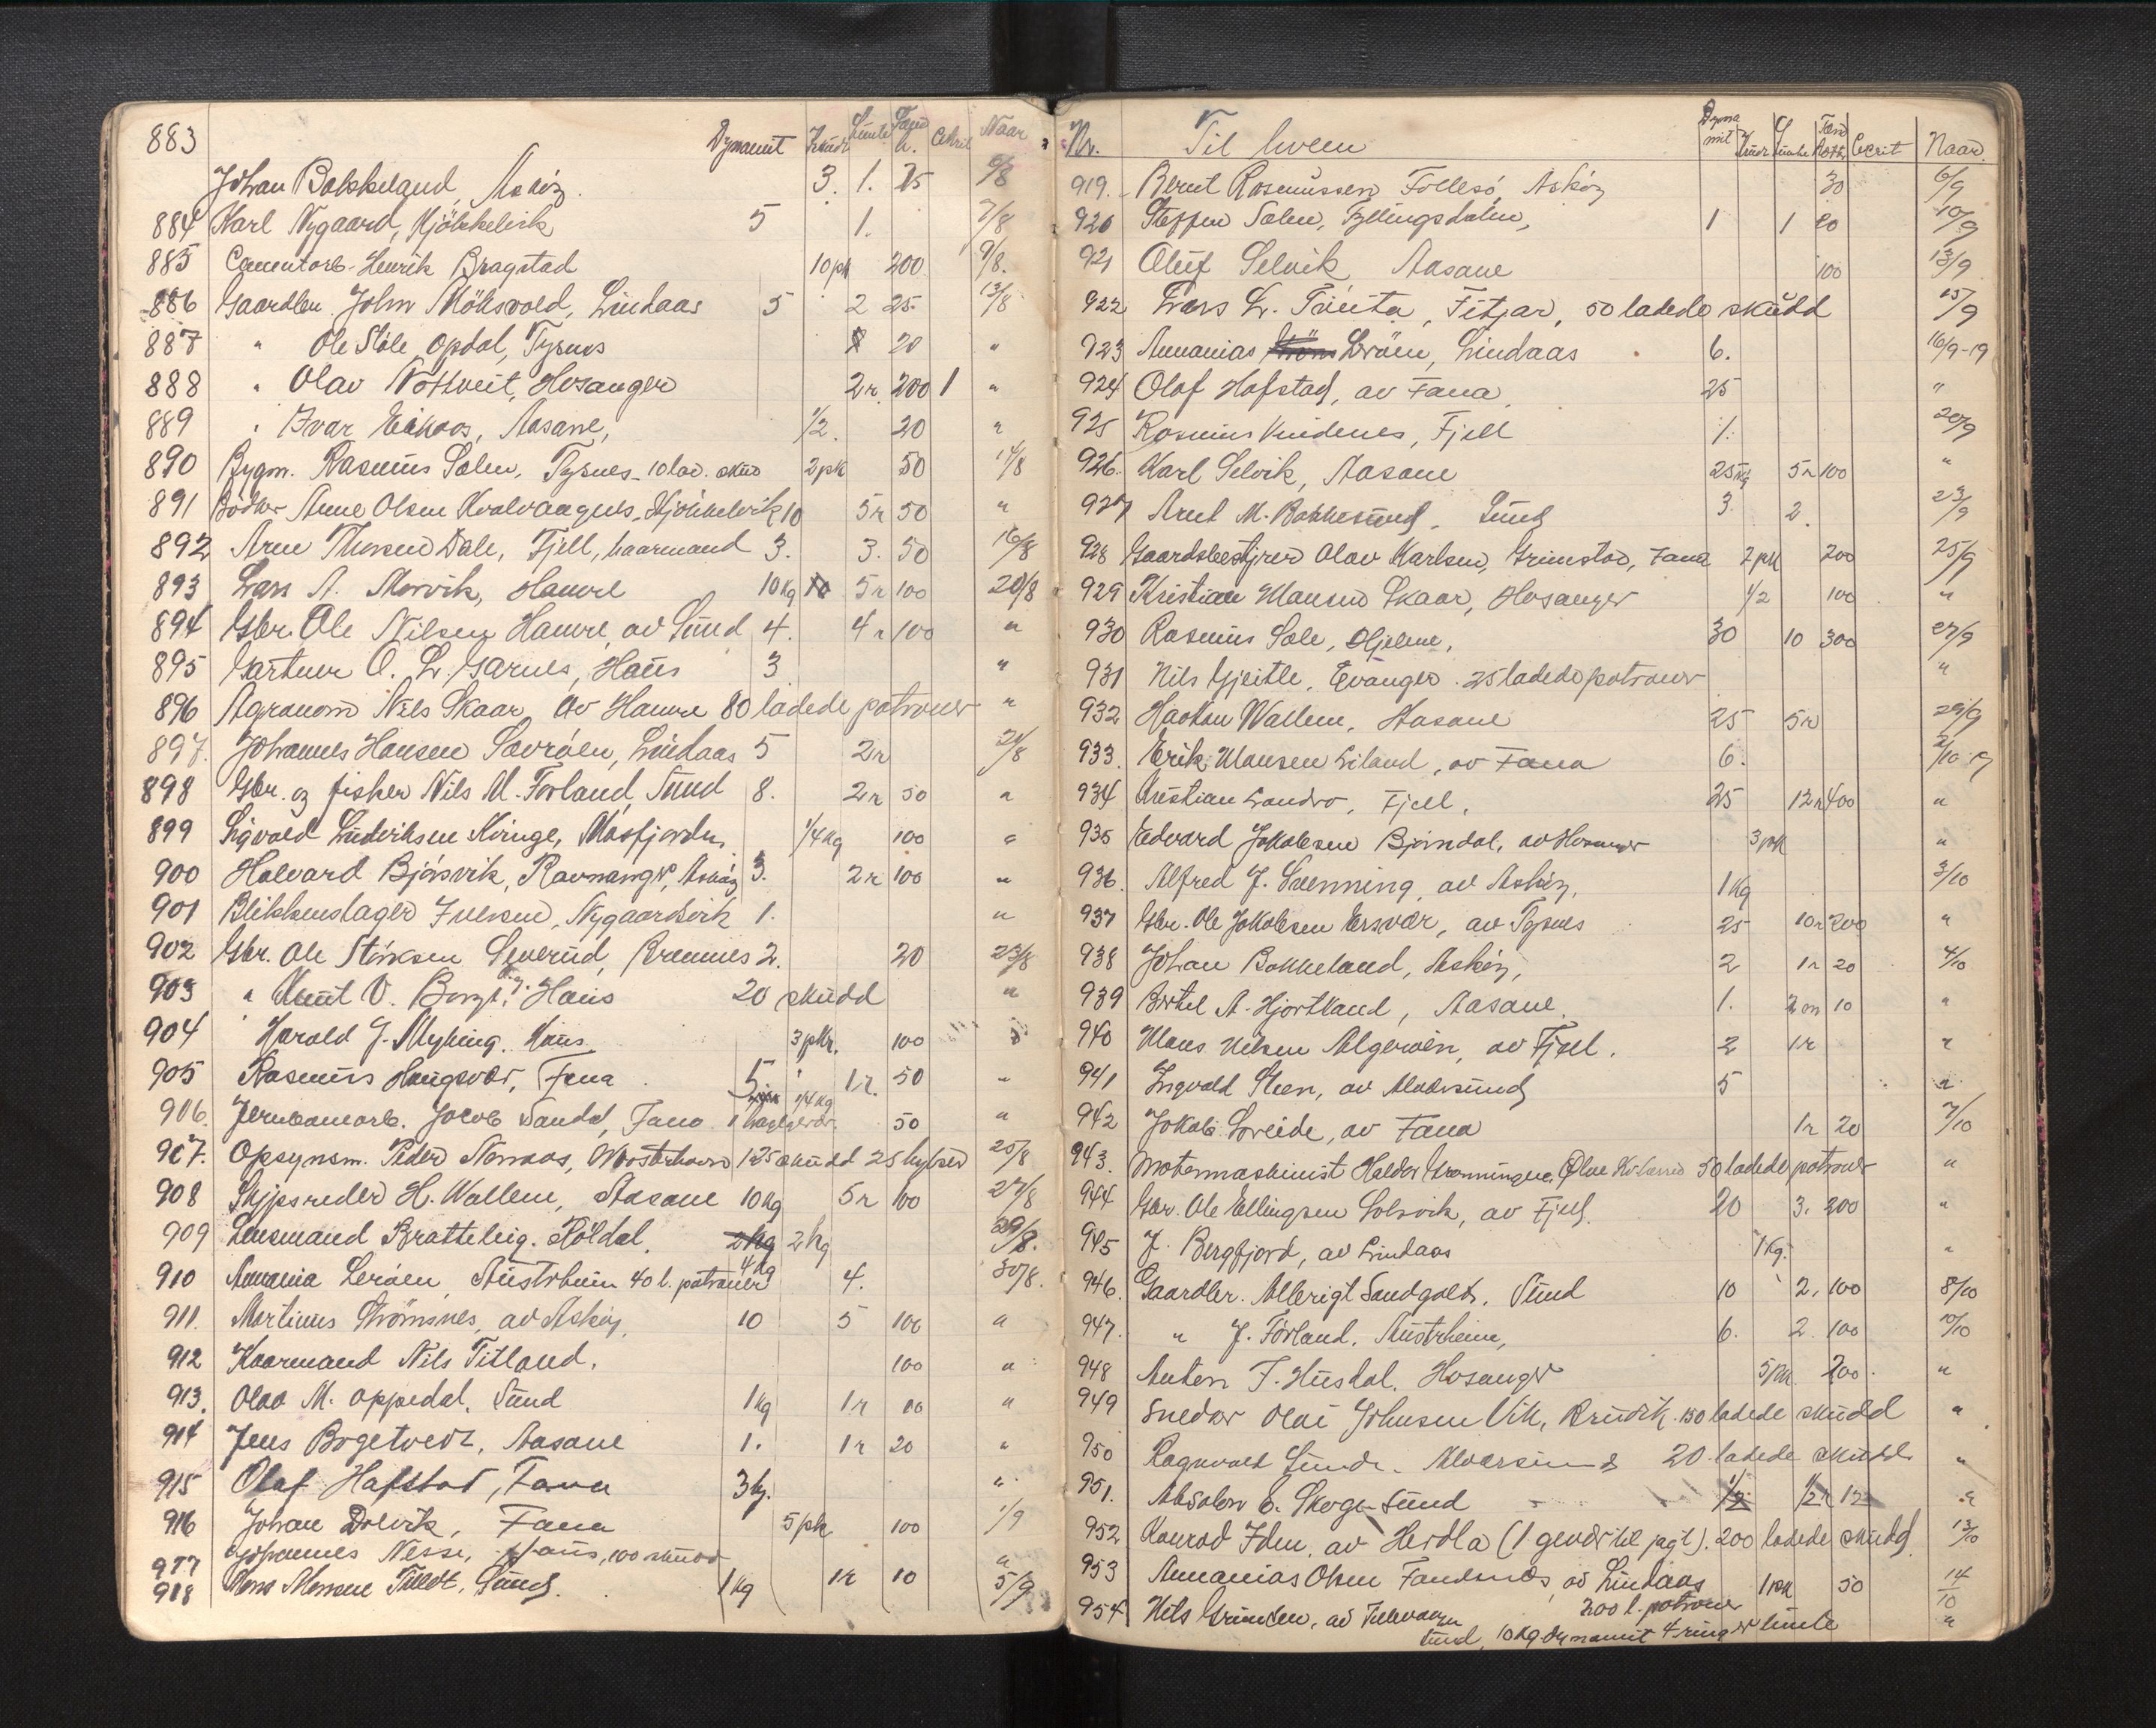 883 Dynamit Krudt Lunte Tænd h. Cekrit Naar
Johan Bakkeland, Askøy. 3. 1. 25 6/8
884 Karl Nygaard, Kjøkkelvik 5 1. 7/8
885 Cementarb. Henrik Bragstad 10 pk 200 9/8.
886 Gaardbr. John Möksvold, Lindaas 5 2 25 13/8
887 " Ole Ståle Opdal, Tysnes 20 "
888 " Olav Nöttveit, Hosanger 2 r. 200 1 "
889 " Ivar Eikaas, Aasane, 1/2. 20 "
890 Bygm. Rasmus Solen, Tysnes - 10 lad. skud 2 pk 50 14/8
891 Bödker Arne Olsen Kvalvaagnes, Kjökkelvik 10 5 r 50 "
892 Arne Thorsen Dale, Fjell, haarmand 3. 3. 50 16/8
893 Lars A. Morvik, Hamre 10 kg 5 r 100 20/8
894 Gbr. Ole Nilsen Hamre, av Sund 4. 4 r 100 "
895 Gartner O. L. Garnes, Haus 3 "
896 Agranom Nils Skaar av Hamre 80 ladede patroner "
897. Johannes Hansen Sævröen, Lindaas 5 2 r 21/8
898 Gbr. og fisker Nils M. Forland, Sund 8. 2 r 50 "
899 Sigvald Ludviksen Kringe, Masfjorden 1/4 kg 100 "
900 Halvard Björsvik, Ravnanger, Askøy 3. 2 r 100 "
901 Blikkenslager Iversen, Nygaardsvik 1. "
902 Gbr. Ole Störksen Severud, Bremnes 2. 20 23/8
903 " Knut V. Borge, Haus 20 skudd "
904 Harald J. Myking, Haus 3 pkr. 100 "
905 Rasmus Haugsvær, Fana 5 1 r. 50 "
906. Jernbanearb. Jacob Sandal, Fana 1 haglgevær 1/4 kg 50 "
907. Opsynsm. Peder Nornaas, 125 skudd 25 hylser 25/8
908 Skipsreder H. Wallem, Aasane 10 kg 5 r 100 27/8
909 Lensmand Bratteteig. Röldal. 2 kg 2 kg 29/8.
910 Anania Leröen, Austrheim 40 l. patroner 4 kg 4. 30/8.
911. Martinus Strömsnes, av Askøy 10 5 100 "
912 Kaarmand Nils Titland. 100 "
913. Olav M. Oppedal, Sund 1 kg 1 r "
914 Jens Brogetvedt, Aasane 1. 1 r 20 "
915 Olaf Hafstad, Fana 3 kg. "
916 Johan Dolvik, Fana 5 pk 100 1/9
917 Johannes Nesse, Haus, 100 skudd "
918 Mons Monsen Tveit, Sund. 1 kg 1 r 10 5/9
Nr. Til hvem Dyna mit Krudt Lunte Tænd hett. Cecrit Naar.
919. Bernt Rasmussen Follesö, Askøy 30 6/9
920 Steffen Solen, Fyllingsdalen, 1 1 20 10/9
921 Oluf Selvik Aasane 100 13/9
922 Lars L. Fitjar, 50 ladede skudd 15/9
923 Ananias Leröen, Lindaas 6. 16/9-19
924 Olaf Hafstad, av Fana 25 "
925 Rasmus Knidenes, Fjell 1. 20/9
926. Karl Selvik, Aasane 25 kg 5 r 100 "
927 Arnt M. Bakkesund, Sund 3 2. 23/9
928 Gaardsbestyrer Olav Karlsen, Grimstad, Fana 2 pk 200 25/9
929 Kristian Monsen Skaar, Hosanger 1/2 100 "
930 Rasmus Sæle, Hjelme. 30 10 300 27/9
931 Nils Gjeitle, Evanger. 25 ladede patroner "
932 Haakon Wallem, Aasane 25 5 r 29/9
933. Erik Monsen Liland, av Fana 6. 2/10 19
934 Kristian Landro, Fjell. 25 12 r 400 "
935 Edvard Jakobsen Björndal, av Hosanger 3 pk "
936. Alfred J. Svenning av Askøy. 1 kg 3/10
937 Gbr. Ole Jakobsen Ersvær, av Tysnes 25 10 r 200 "
938 Johan Bakkeland, Askøy, 2 1 r 20 4/10
939 Bertel A. Hjortland, Aasane. 1. 2 m 10 "
940 Mons Nilsen Algeröen, av Fjell. 2 1 r "
941 Ingvald Steen, av Alversund 5 "
942 Jokob Loreide, av Fana 1 r 20 7/10
943. Motormaskinist Haldor Grönningen, Ølve 50 ladede patroner "
944 Gbr. Ole Ellingsen Solsvik, av Fjell. 20 3. 200 "
945 J. Bergfjord, av Lindaas 1 kg. "
946. Gaardbr. Allerigt Sandgolds, Sund 10 2. 100 8/10
947. " J. Förland, Austrheim, 6. 2 100 10/10
948 Anton J. Husdal. Hosanger 5 pk 200 "
949 Snedker Olai Johnsen Vik, Bruvik. 150 ladede skudd "
950 Ragnvald Alversund 20 ladede skudd "
951. Absalon E. Skoge Sund 1/2 1/2 r 12 "
952 Konrad Iden, av Herdla (1 gevær til jagt). 200 ladede skudd 13/10
953 Ananias Olsen Fandsnes, av Lindaas 1 pk 50 14/10
954 Nils av 200 l. patroner "
Sund, 10 kg dynamit 4 ringer lunte